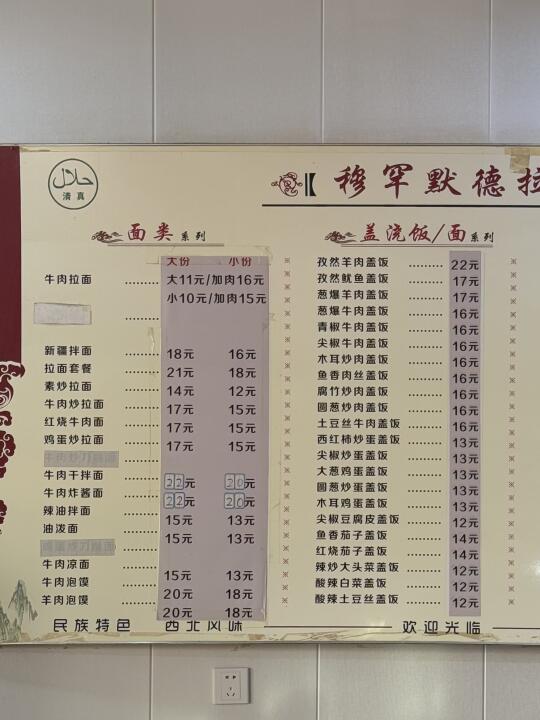 حلال
清真
穆罕默德拉
面类系列
大份 小份
牛肉拉面 ……… 大11元/加肉16元
小10元/加肉15元
新疆拌面 ……… 18元 16元
拉面套餐 ……… 21元 18元
素炒拉面 ……… 14元 12元
牛肉炒拉面 ……… 17元 15元
红烧牛肉面 ……… 17元 15元
鸡蛋炒拉面 ……… 17元 15元
牛肉干拌面 ……… 22元 20元
牛肉炸酱面 ……… 22元 20元
辣油拌面 ……… 15元 13元
油泼面 ……… 15元 13元
牛肉凉面 ……… 15元 13元
牛肉泡馍 ……… 20元 18元
羊肉泡馍 ……… 20元 18元
盖浇饭/面系列
孜然羊肉盖饭 ……… 22元
孜然鱿鱼盖饭 ……… 17元
葱爆羊肉盖饭 ……… 17元
葱爆牛肉盖饭 ……… 16元
青椒牛肉盖饭 ……… 16元
尖椒牛肉盖饭 ……… 16元
木耳炒肉盖饭 ……… 16元
鱼香肉丝盖饭 ……… 16元
腐竹炒肉盖饭 ……… 16元
圆葱炒肉盖饭 ……… 16元
土豆丝牛肉盖饭 ……… 16元
西红柿炒蛋盖饭 ……… 13元
尖椒炒蛋盖饭 ……… 13元
大葱鸡蛋盖饭 ……… 13元
圆葱炒蛋盖饭 ……… 13元
木耳鸡蛋盖饭 ……… 13元
尖椒豆腐皮盖饭 ……… 12元
鱼香茄子盖饭 ……… 14元
红烧茄子盖饭 ……… 14元
辣炒大头菜盖饭 ……… 12元
酸辣白菜盖饭 ……… 12元
酸辣土豆丝盖饭 ……… 12元
民族特色 西北风味 欢迎光临